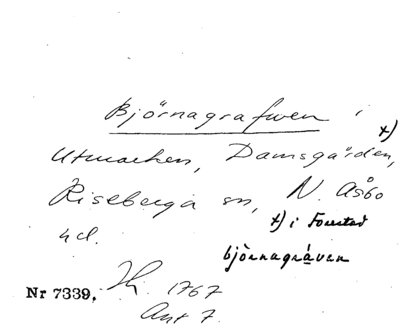 Björnagrafwen i
Utmarken, Damsgården, x)
Riseberga sn, N. Åsbo
hd.
x) i Forestad
björnagráven
Nr 7339. Th. 1767
Akt 7.